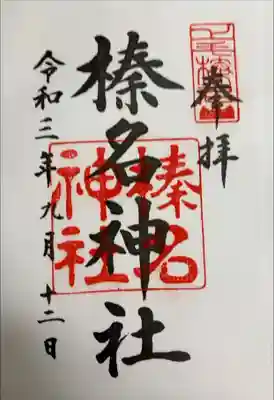 奉拝
榛名神社
榛名神社
令和三年九月十二日